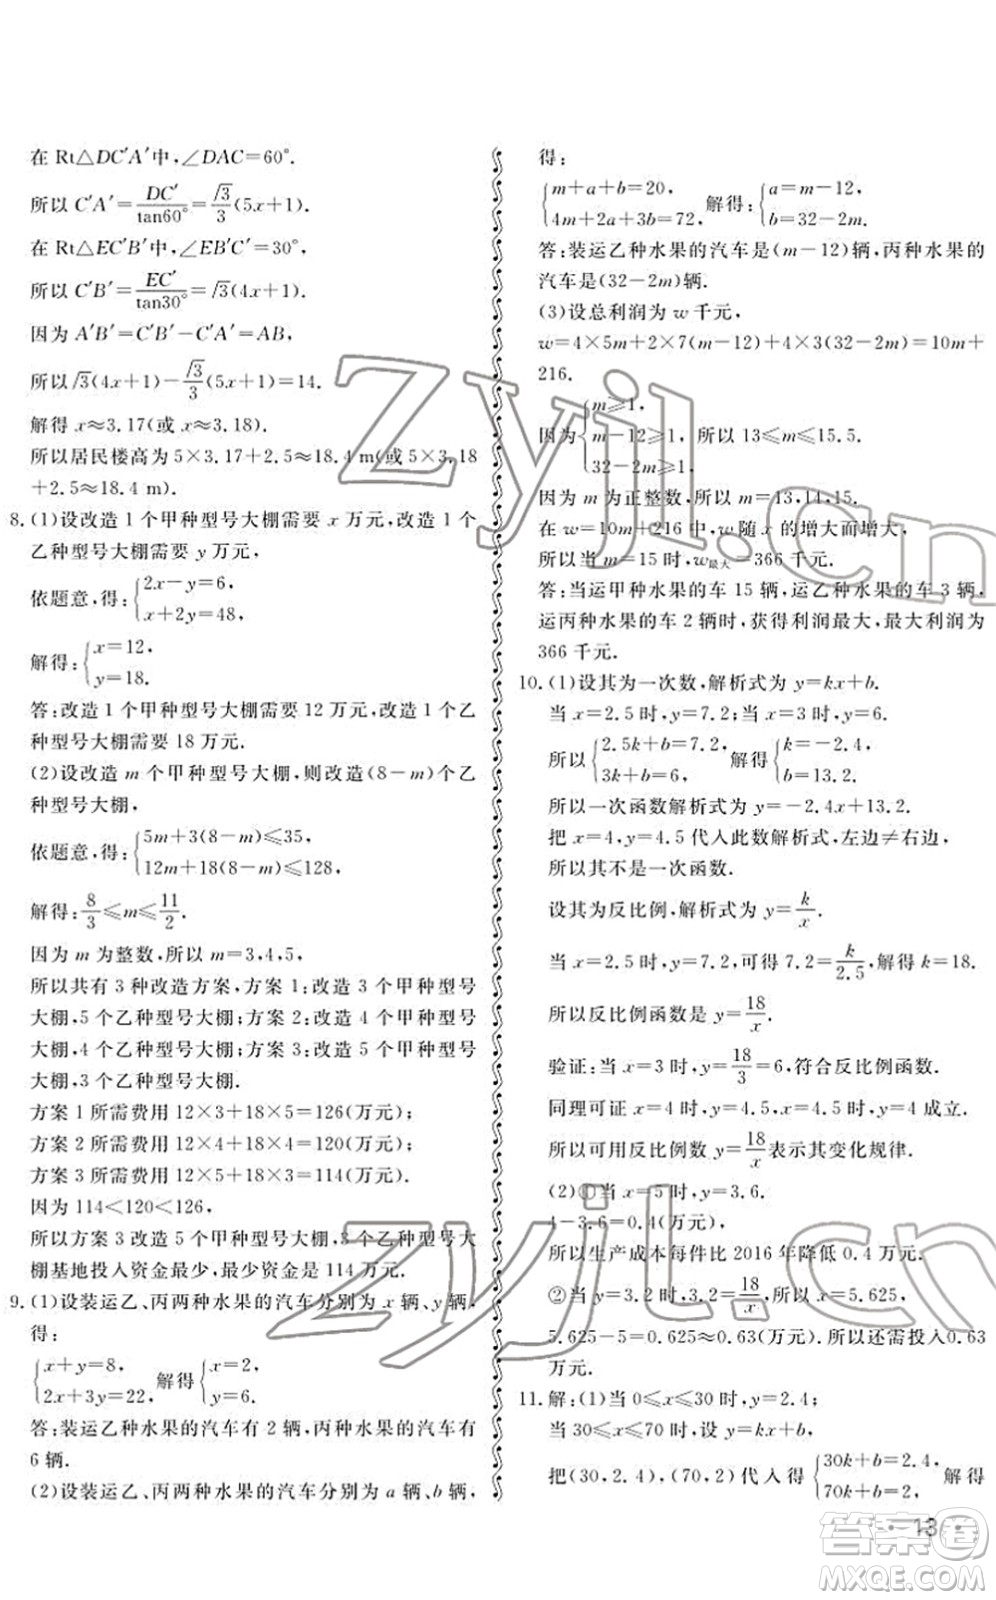 在 Rt△DC′A′中,∠DAC=60°.
所以 C′A′=DC′/tan60°=√3/3(5x+1).
在 Rt△EC′B′中,∠EB′C′=30°,
所以 C′B′=EC′/tan30°=√3(4x+1).
因为 A′B′=C′B′-C′A′=AB,
所以√3(4x+1)-√3/3(5x+1)=14.
解得 x≈3.17(或 x≈3.18).
所以居民楼高为 5×3.17+2.5≈18.4 m(或 5×3.18
+2.5≈18.4 m).
8. (1)设改造 1 个甲种型号大棚需要 x 万元,改造 1 个
乙种型号大棚需要 y 万元,
依题意,得:{2x-y=6,
x+2y=48,
解得:{x=12,
y=18.
答:改造 1 个甲种型号大棚需要 12 万元,改造 1 个乙
种型号大棚需要 18 万元.
(2)设改造 m 个甲种型号大棚,则改造(8-m)个乙
种型号大棚,
依题意,得:{5m+3(8-m)≤35,
12m+18(8-m)≤128,
解得:8/3≤m≤11/2.
因为 m 为整数,所以 m=3,4,5,
所以共有 3 种改造方案,方案 1:改造 3 个甲种型号
大棚,5 个乙种型号大棚;方案 2:改造 4 个甲种型号
大棚,4 个乙种型号大棚;方案 3:改造 5 个甲种型号
大棚,3 个乙种型号大棚.
方案 1 所需费用 12×3+18×5=126(万元);
方案 2 所需费用 12×4+18×4=120(万元);
方案 3 所需费用 12×5+18×3=114(万元).
因为 114<120<126,
所以方案 3 改造 5 个甲种型号大棚,3 个乙种型号大
棚基地投入资金最少,最少资金是 114 万元.
9. (1)设装运乙、丙两种水果的汽车分别为 x 辆,y 辆,
得:
{x+y=8,
2x+3y=22, 解得{x=2,
y=6.
答:装运乙种水果的汽车有 2 辆,丙种水果的汽车有
6 辆.
(2)设装运乙、丙两种水果的汽车分别为 a 辆,b 辆,
得:
{m+a+b=20,
4m+2a+3b=72, 解得:{a=m-12,
b=32-2m.
答:装运乙种水果的汽车是(m-12)辆,丙种水果的
汽车是(32-2m)辆.
(3)设总利润为 w 千元,
w=4×5m+2×7(m-12)+4×3(32-2m)=10m+
216.
因为{m≥1,
m-12≥1,
32-2m≥1, 所以 13≤m≤15.5.
因为 m 为正整数,所以 m=13,14,15.
在 w=10m+216 中,w 随 x 的增大而增大,
所以当 m=15 时,w最大=366 千元.
答:当运甲种水果的车 15 辆,运乙种水果的车 3 辆,
运丙种水果的车 2 辆时,获得利润最大,最大利润为
366 千元.
10. (1)设其为一次数,解析式为 y=kx+b.
当 x=2.5 时,y=7.2;当 x=3 时,y=6.
所以{2.5k+b=7.2,
3k+b=6; 解得{k=-2.4,
b=13.2.
所以一次函数解析式为 y=-2.4x+13.2.
把 x=4,y=4.5 代入此数解析式,左边≠右边,
所以其不是一次函数.
设其为反比例,解析式为 y=k/x.
当 x=2.5 时,y=7.2,可得 7.2=k/2.5,解得 k=18.
所以反比例函数是 y=18/x.
验证:当 x=3 时,y=18/3=6,符合反比例函数.
同理可证 x=4 时,y=4.5,x=4.5 时,y=4 成立.
所以可用反比例数 y=18/x表示其变化规律.
(2)①当 x=5 时,y=3.6.
4-3.6=0.4(万元),
所以生产成本每件比 2016 年降低 0.4 万元.
②当 y=3.2 时,3.2=18/x,所以 x=5.625,
5.625-5=0.625≈0.63(万元).所以还需投入0.63
万元.
11. 解:(1)当 0≤x≤30 时,y=2.4;
当 30≤x≤70 时,设 y=kx+b,
把(30,2.4),(70,2)代入得{30k+b=2.4,
70k+b=2, 解得
·13·
zyjl.cn
zyjl.cn
答案圈
MXQE.COM